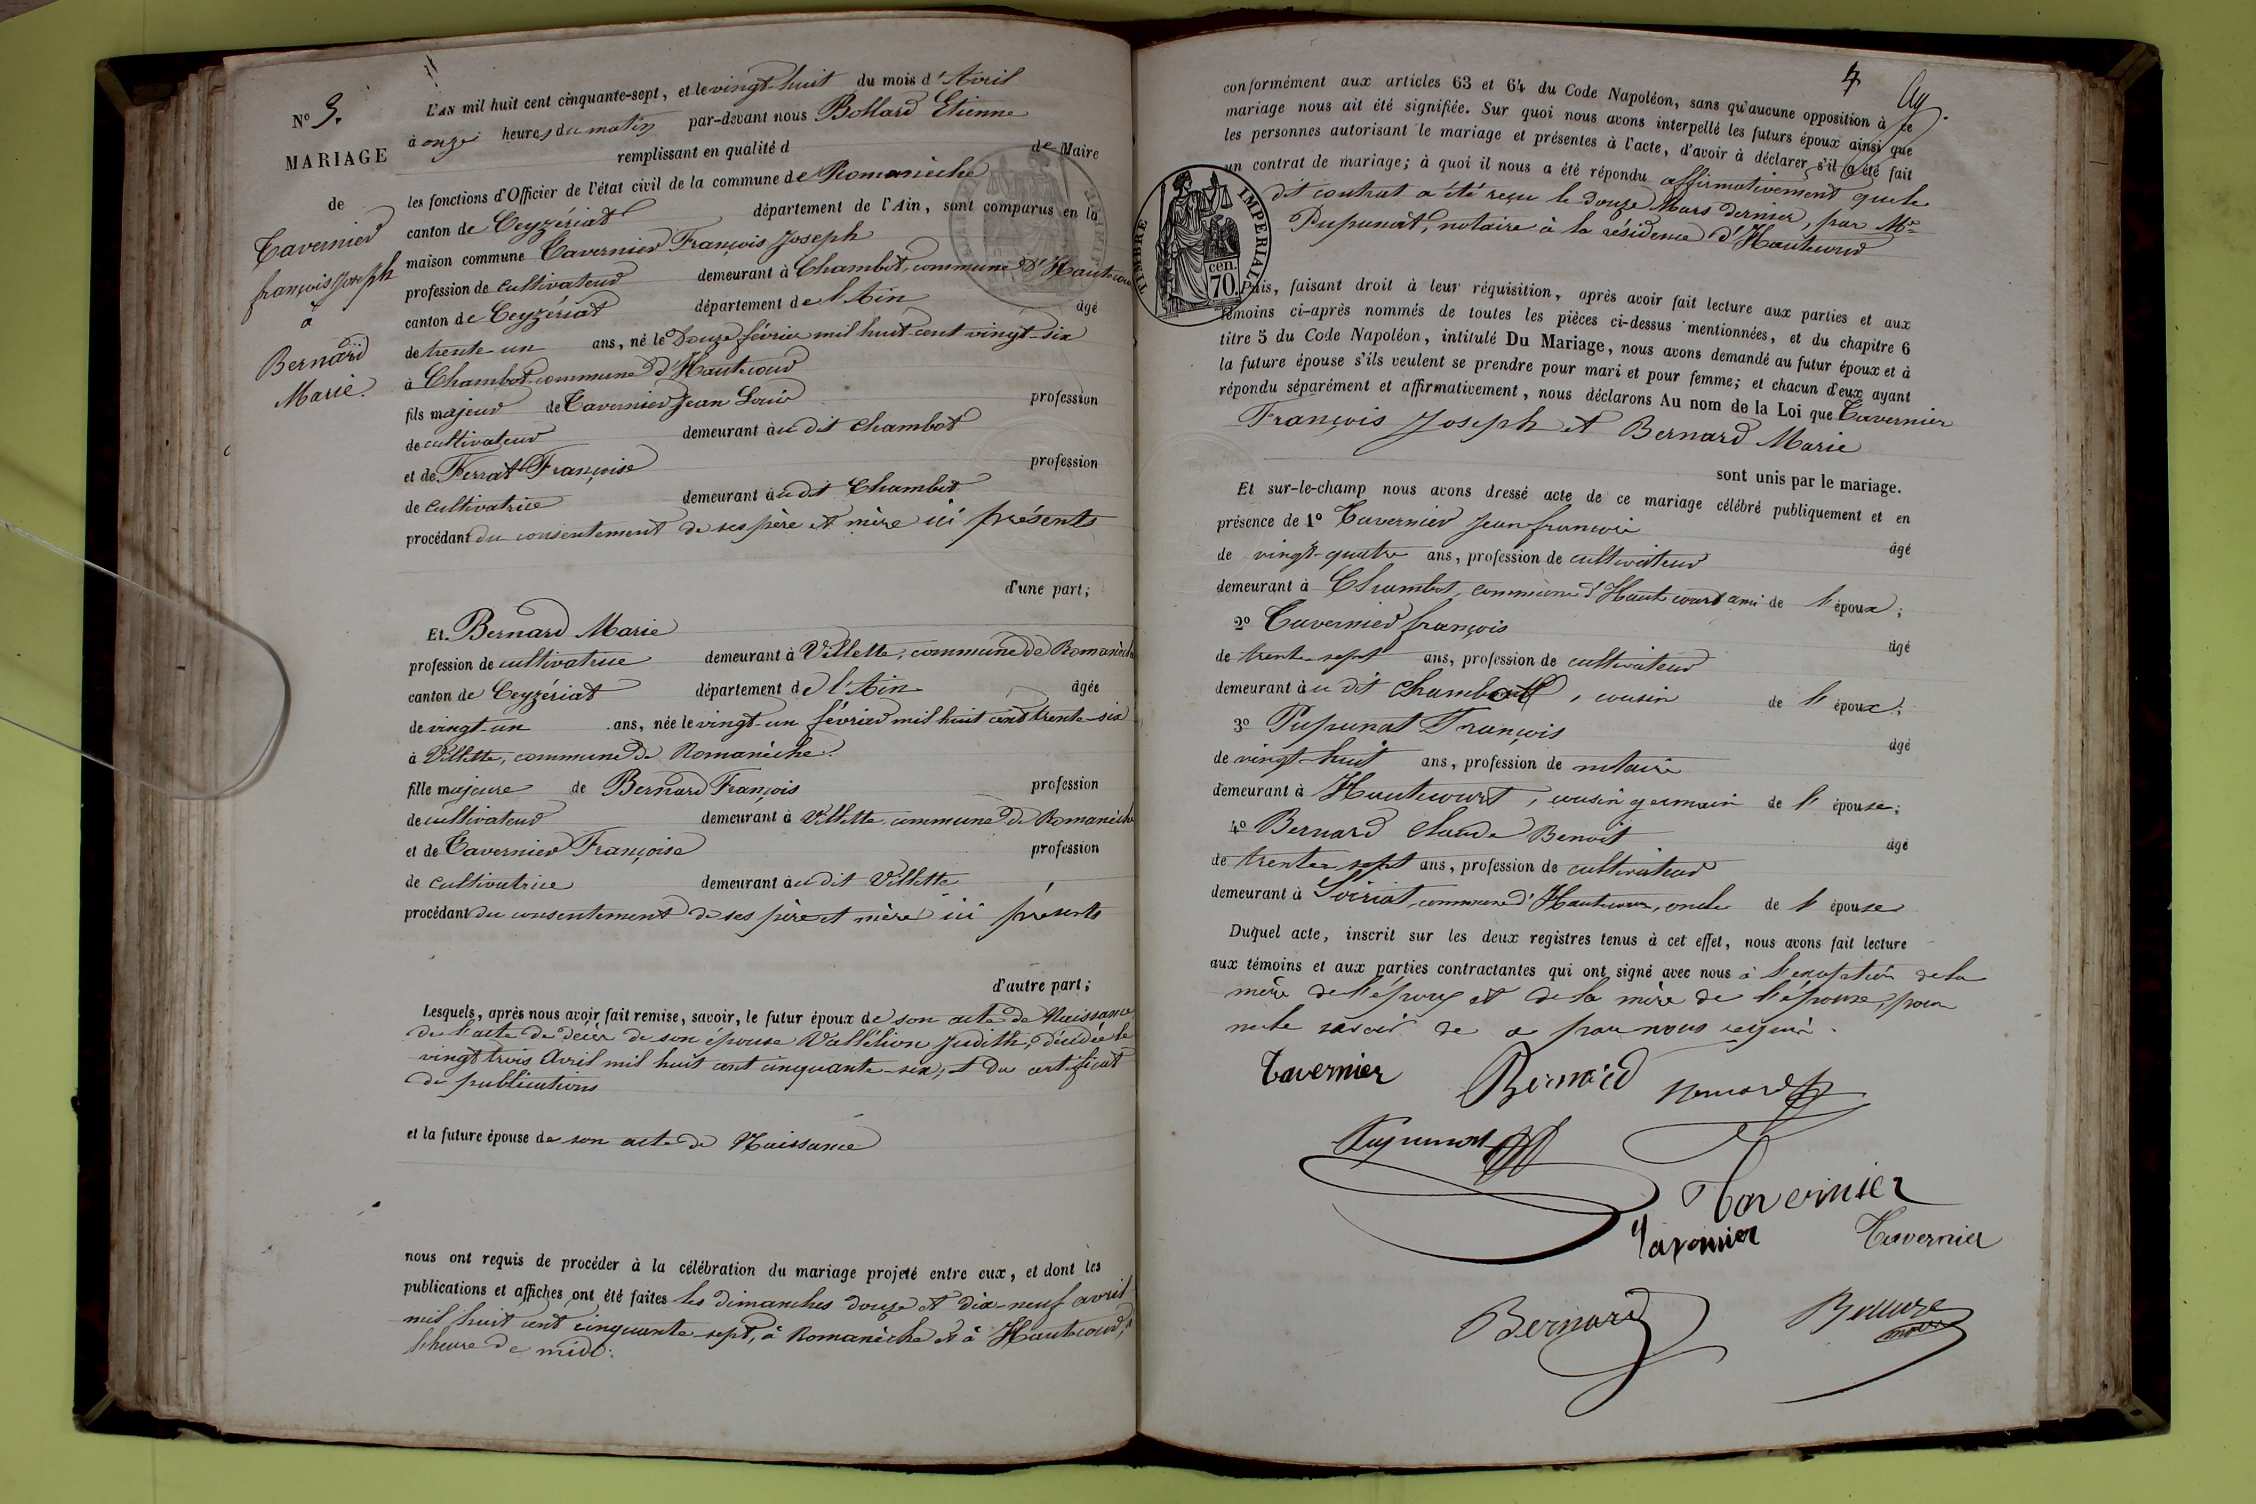 N° 3.
MARIAGE
de
Tavernier
françois Joseph
à
Bernard
Marie.
L'AN mil huit cent cinquante-sept, et le vingt-huit du mois d'Avril
à onze heures du matin par-devant nous Bollard Etienne
remplissant en qualité d de Maire
les fonctions d'Officier de l'état civil de la commune de Romanèche
canton de Ceyzériat département de l'Ain, sont comparus en la
maison commune Tavernier François Joseph
profession de cultivateur demeurant à Chambot, commune d'Hautecour
canton de Ceyzériat département de l'Ain âgé
de trente-un ans, né le Douze février mil huit cent vingt-six
à Chambot commune d'Hautecour
fils majeur de Tavernier Jean Louis profession
de cultivateur demeurant audit Chambot
et de Ferrat Françoise profession
de cultivatrice demeurant audit Chambot
procédant du consentement de ses père et mère ici présents
d'une part;
Et Bernard Marie
profession de cultivatrice demeurant à Villette, commune de Romanèche
canton de Ceyzériat département de l'Ain âgée
de vingt-un ans, née le vingt-un février mil huit cent trente-six
à Villette, commune de Romanèche.
fille majeure de Bernard François profession
de cultivateur demeurant à Villette commune de Romanèche
et de Tavernier Françoise profession
de cultivatrice demeurant audit Villette
procédant du consentement de ses père et mère ici présents
d'autre part;
Lesquels, après nous avoir fait remise, savoir, le futur époux de son acte de Naissance
de l'acte de décès de son épouse Vallélion Judith, décédée le
vingt trois Avril mil huit cent cinquante-six, et du certificat
de publications
et la future épouse de son acte de Naissance
nous ont requis de procéder à la célébration du mariage projeté entre eux, et dont les
publications et affiches ont été faites les dimanches douze et dix-neuf avril
mil huit cent cinquante-sept, à Romanèche et à Hautecour, à
l'heure de midi.
4
conformément aux articles 63 et 64 du Code Napoléon, sans qu'aucune opposition à ce
mariage nous ait été signifiée. Sur quoi nous avons interpellé les futurs époux ainsi que
les personnes autorisant le mariage et présentes à l'acte, d'avoir à déclarer s'il a été fait
un contrat de mariage; à quoi il nous a été répondu affirmativement que le
dit contrat a été reçu le douze Mars dernier, par Me
Pupunat, notaire à la résidence d'Hautecour
TIMBRE IMPERIAL
cen.
70.
Puis, faisant droit à leur réquisition, après avoir fait lecture aux parties et aux
témoins ci-après nommés de toutes les pièces ci-dessus mentionnées, et du chapitre 6
titre 5 du Code Napoléon, intitulé Du Mariage, nous avons demandé au futur époux et à
la future épouse s'ils veulent se prendre pour mari et pour femme; et chacun d'eux ayant
répondu séparément et affirmativement, nous déclarons Au nom de la Loi que Tavernier
François Joseph et Bernard Marie
sont unis par le mariage.
Et sur-le-champ nous avons dressé acte de ce mariage célébré publiquement et en
présence de 1° Tavernier Jean françois âgé
de vingt-quatre ans, profession de cultivateur
demeurant à Chambot, commune d'Hautecourt ami de l'époux;
2° Tavernier françois âgé
de trente-sept ans, profession de cultivateur
demeurant audit Chambot, cousin de l'époux;
3° Pupunat François âgé
de vingt-huit ans, profession de notaire
demeurant à Hautecourt, cousin germain de l'épouse;
4° Bernard Claude Benoit âgé
de trente sept ans, profession de cultivateur
demeurant à Soiriat, commune d'Hautecour, oncle de l'épouse
Duquel acte, inscrit sur les deux registres tenus à cet effet, nous avons fait lecture
aux témoins et aux parties contractantes qui ont signé avec nous à l'exception de la
mère de l'époux et de la mère de l'épouse, pour
ne le savoir de ce par nous requis.
Tavernier Bernard
Pupunat
Tavernier
Tavernier Tavernier
Bernard